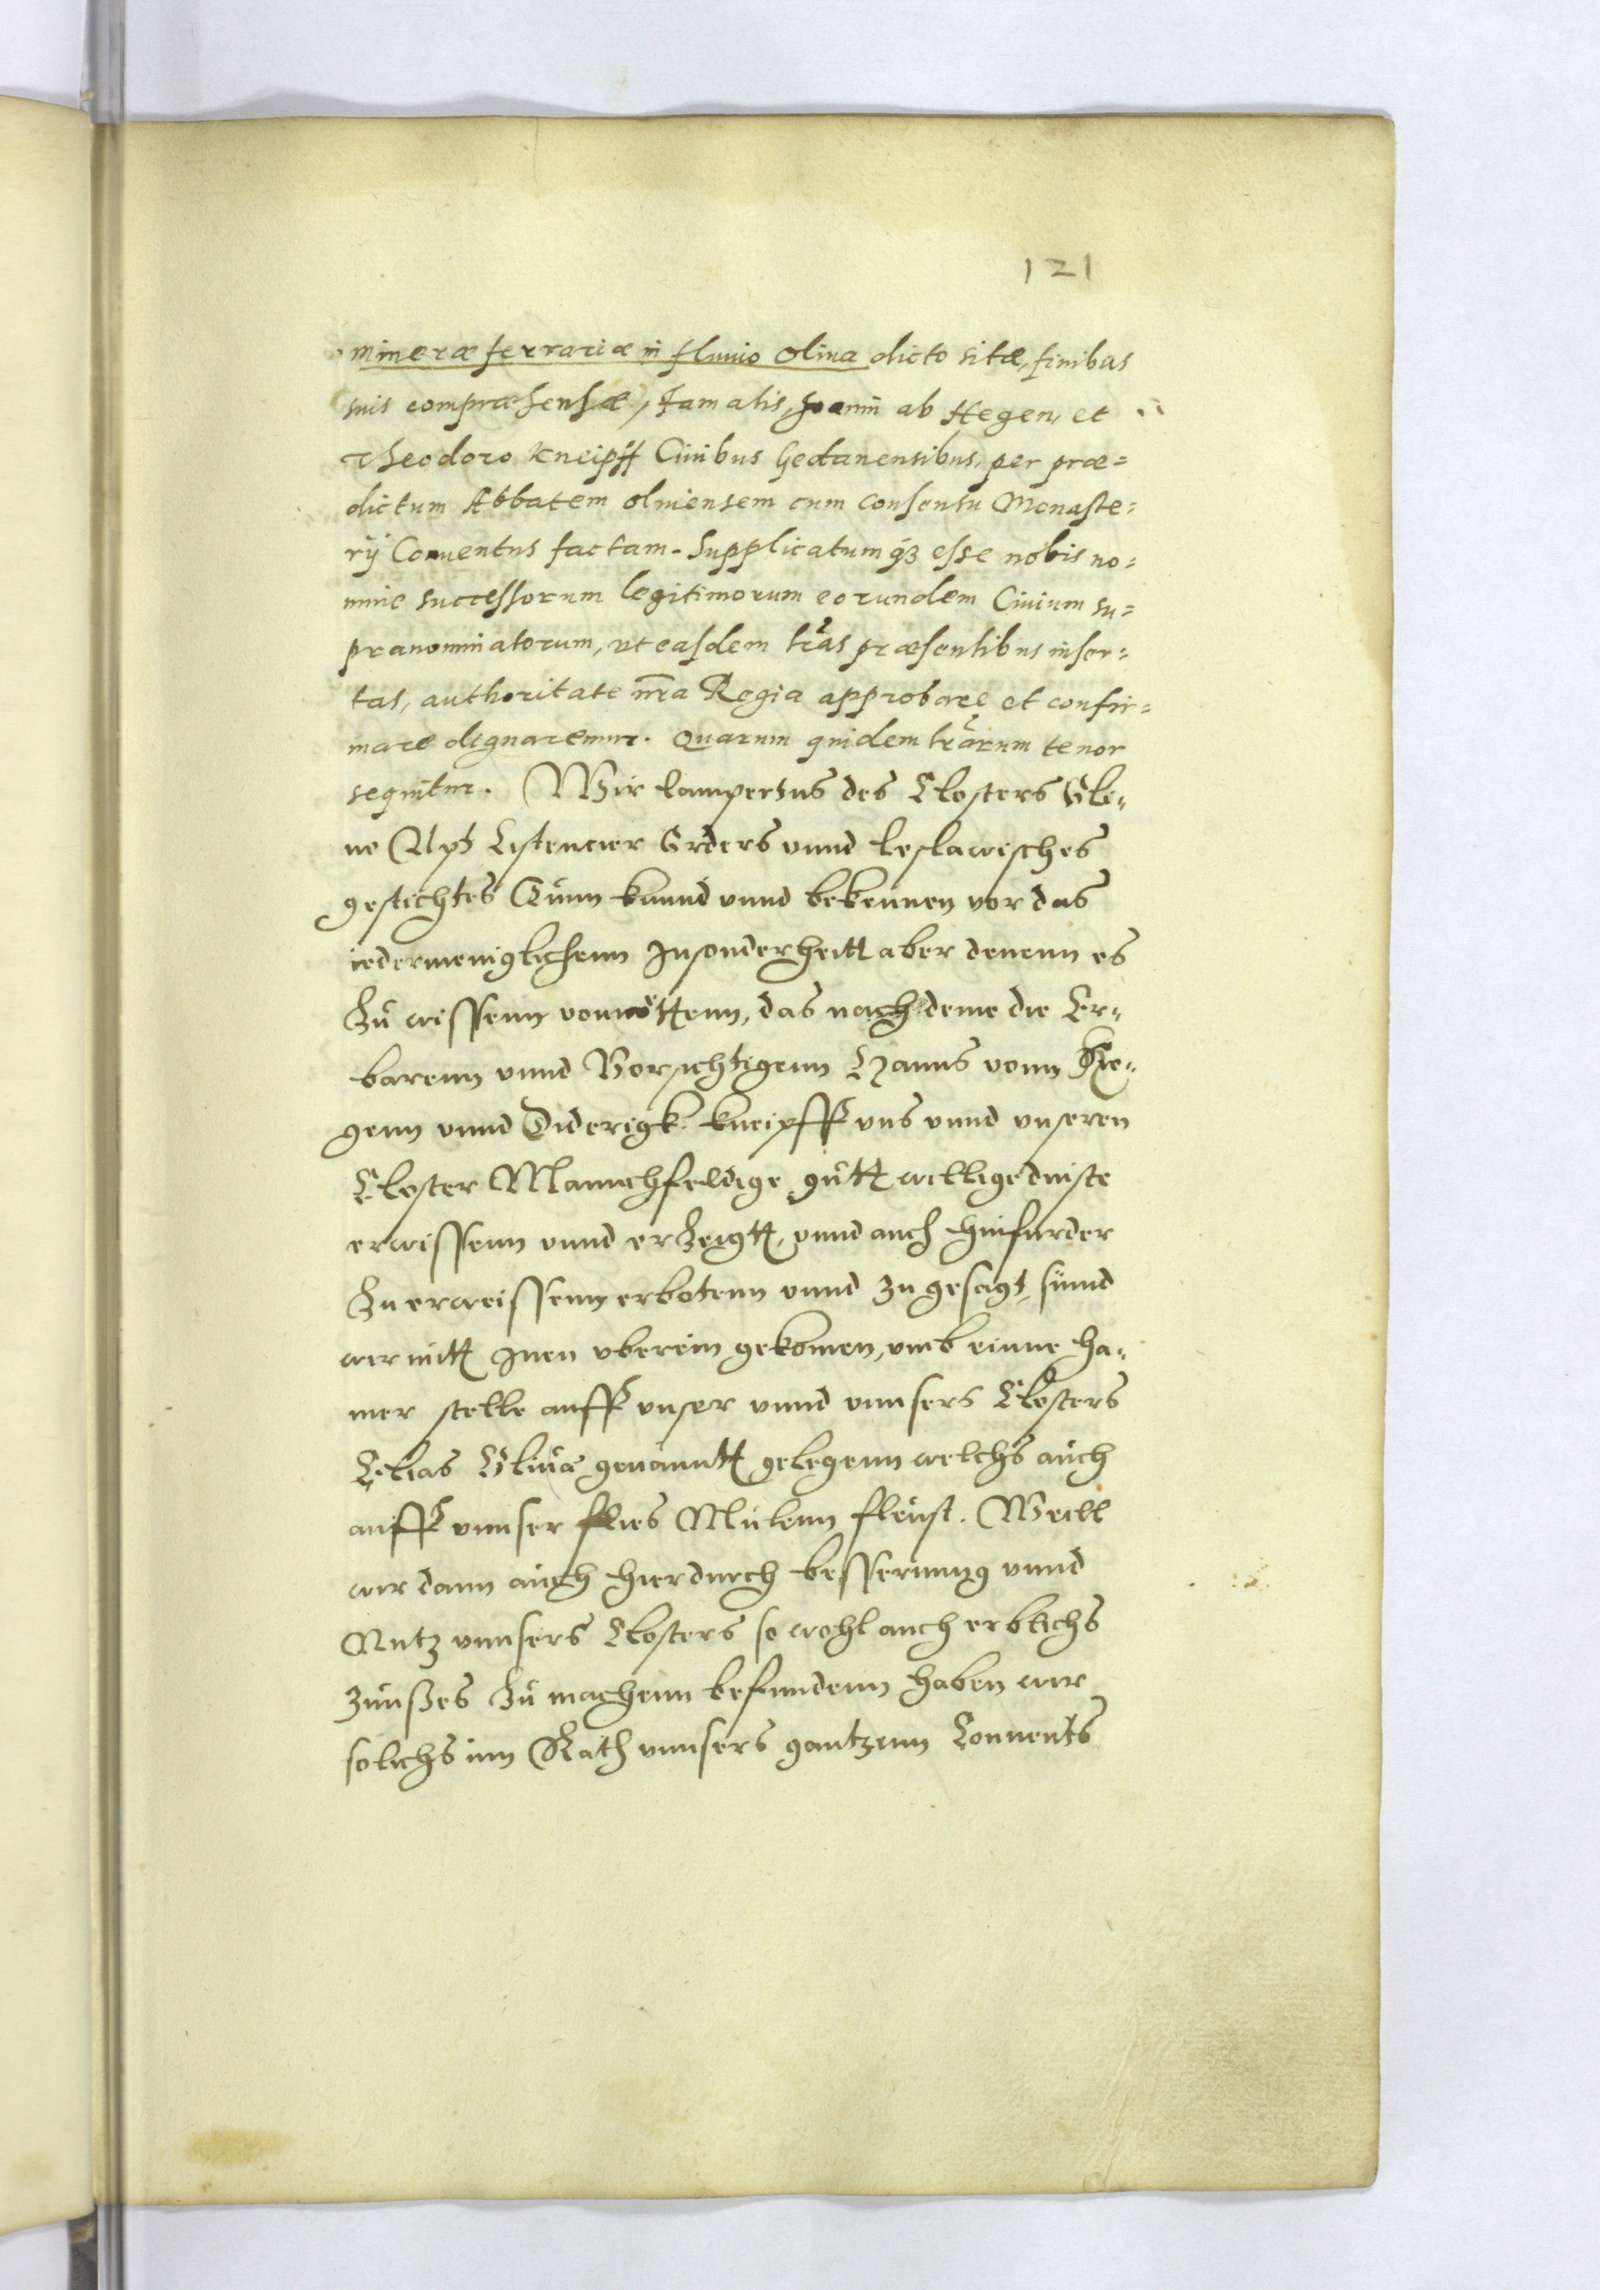 121
mineræ ferrariæ in fluuio Oliua dicto sitæ, finibus
suis compræhensæ, famatis, Joanni ab Hegen, et
Theodoro Kneipff Ciuibus Gedanensibus, per præ=
dictum Abbatem oliuensem cum Consensu Monaste=
rij Conuentus factam. Supplicatumq3 esse nobis no=
mine successorum legitimorum eorundem Ciuium su=
pranominatorum, vt easdem lrãs præsentibus inser=
tas, authoritate nrã Regia approbare et confir=
mare dignaremur. Quarum quidem lrãrum tenor
sequitur. Wir Lampertus des Closters Oli=
ue Apt Cistencier Orders vnnd leslawisches
gestichtes Thunn kunnd vnnd bekennen vor das
iedermeniglichenn Insonderheitt aber denenn es
Zu wissenn vonnöttenn, das nach deme die Er=
barenn vnnd Vorsichtigenn Hanns vonn He=
genn vnnd Diderigk Kneipff vns vnnd vnseren
Closter Mannichfeldige gutt willige dinste
erwissenn vnnd erZeigtt, vnnd auch hinfurder
Zu erweissenn erbotenn vnnd zu gesagt, sinnd
wir mitt Inen vberein gekomen, vmb einne ha=
mer stelle auff vnser vnnd vnnsers Closters
Elias Oliua genanntt gelegenn welchs auch
auff vnnser flies Mulenn fleust. Weill
wir dann auch hierdurch besserunng vnnd
Nutz vnnsers Closters so wohl auch erblichs
zinses Zu machenn befundenn haben wir
solichs inn Rath vnnsers gantzenn Conuents